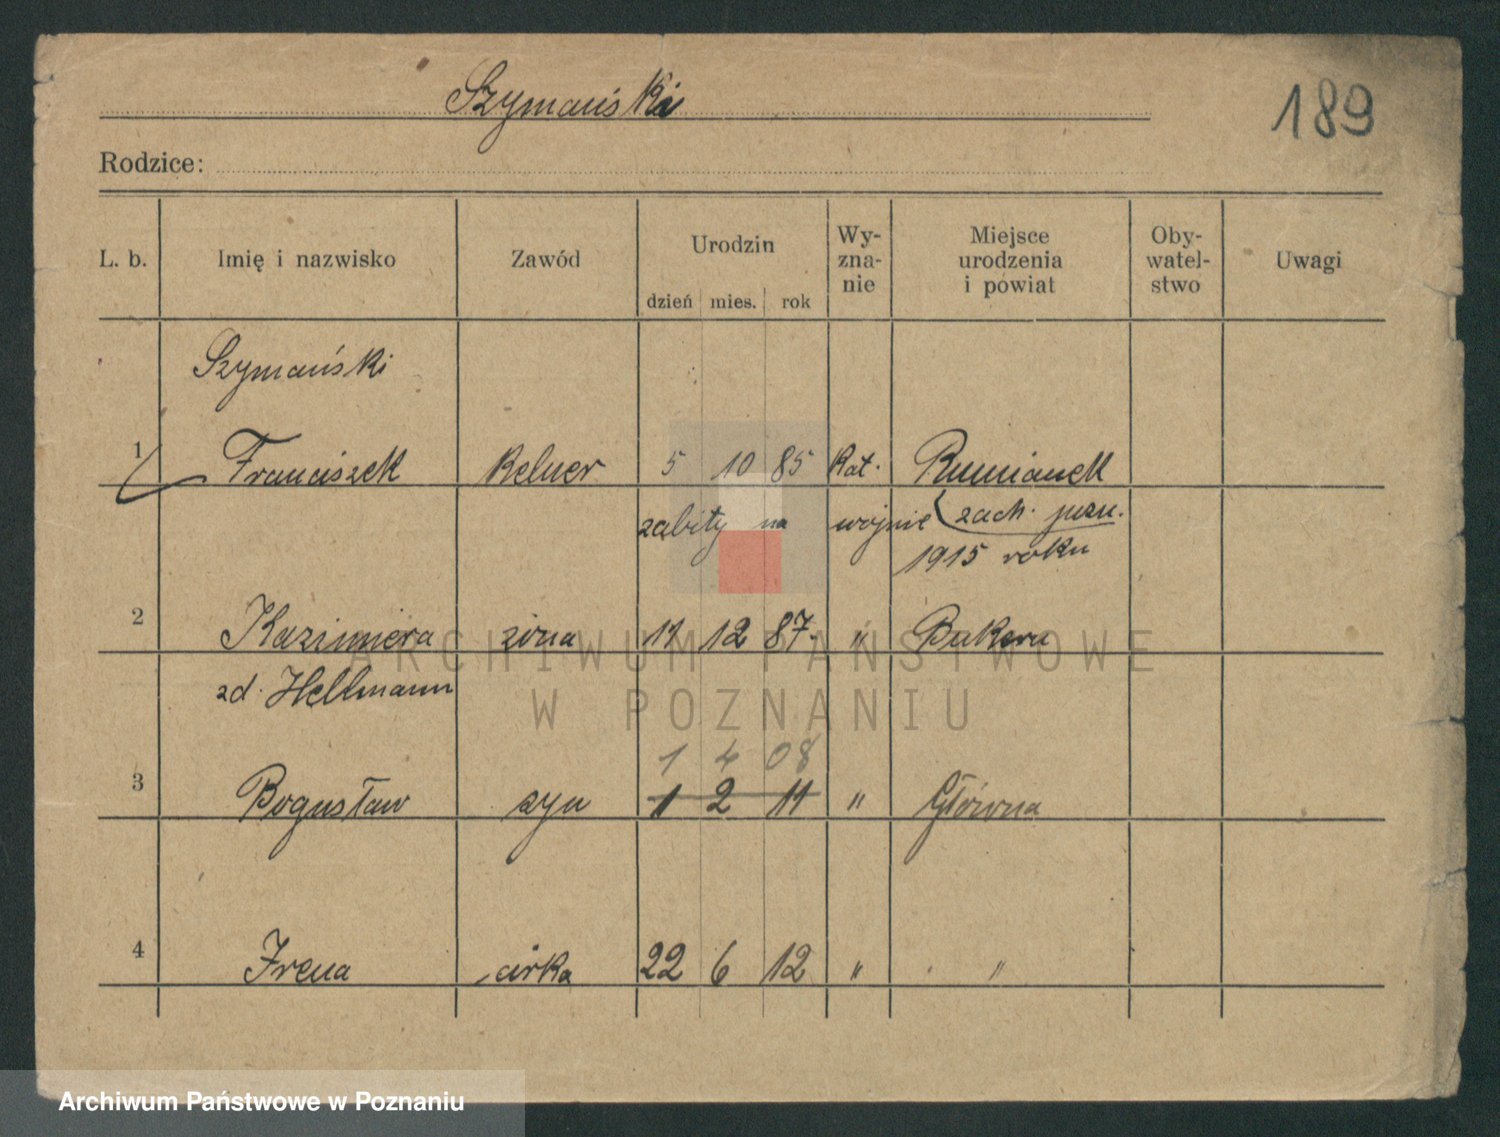 Szymański
189
Rodzice:
L. b. Imię i nazwisko Zawód Urodzin dzień mies. rok Wy-zna-nie Miejsce urodzenia i powiat Oby-watel-stwo Uwagi
Szymański
1 Franciszek Kelner 5 10 85 Kat. Rumianek
zabity na wojnie zach. pozn.
1915 roku
2 Kazimiera żona 11 12 87. " Bukeru
zd. Hellmann
1 4 08
3 Bogusław syn 1 2 11 " Główna
4 Irena córka 22 6 12 " "
ARCHIWUM PAŃSTWOWE
W POZNANIU
Archiwum Państwowe w Poznaniu